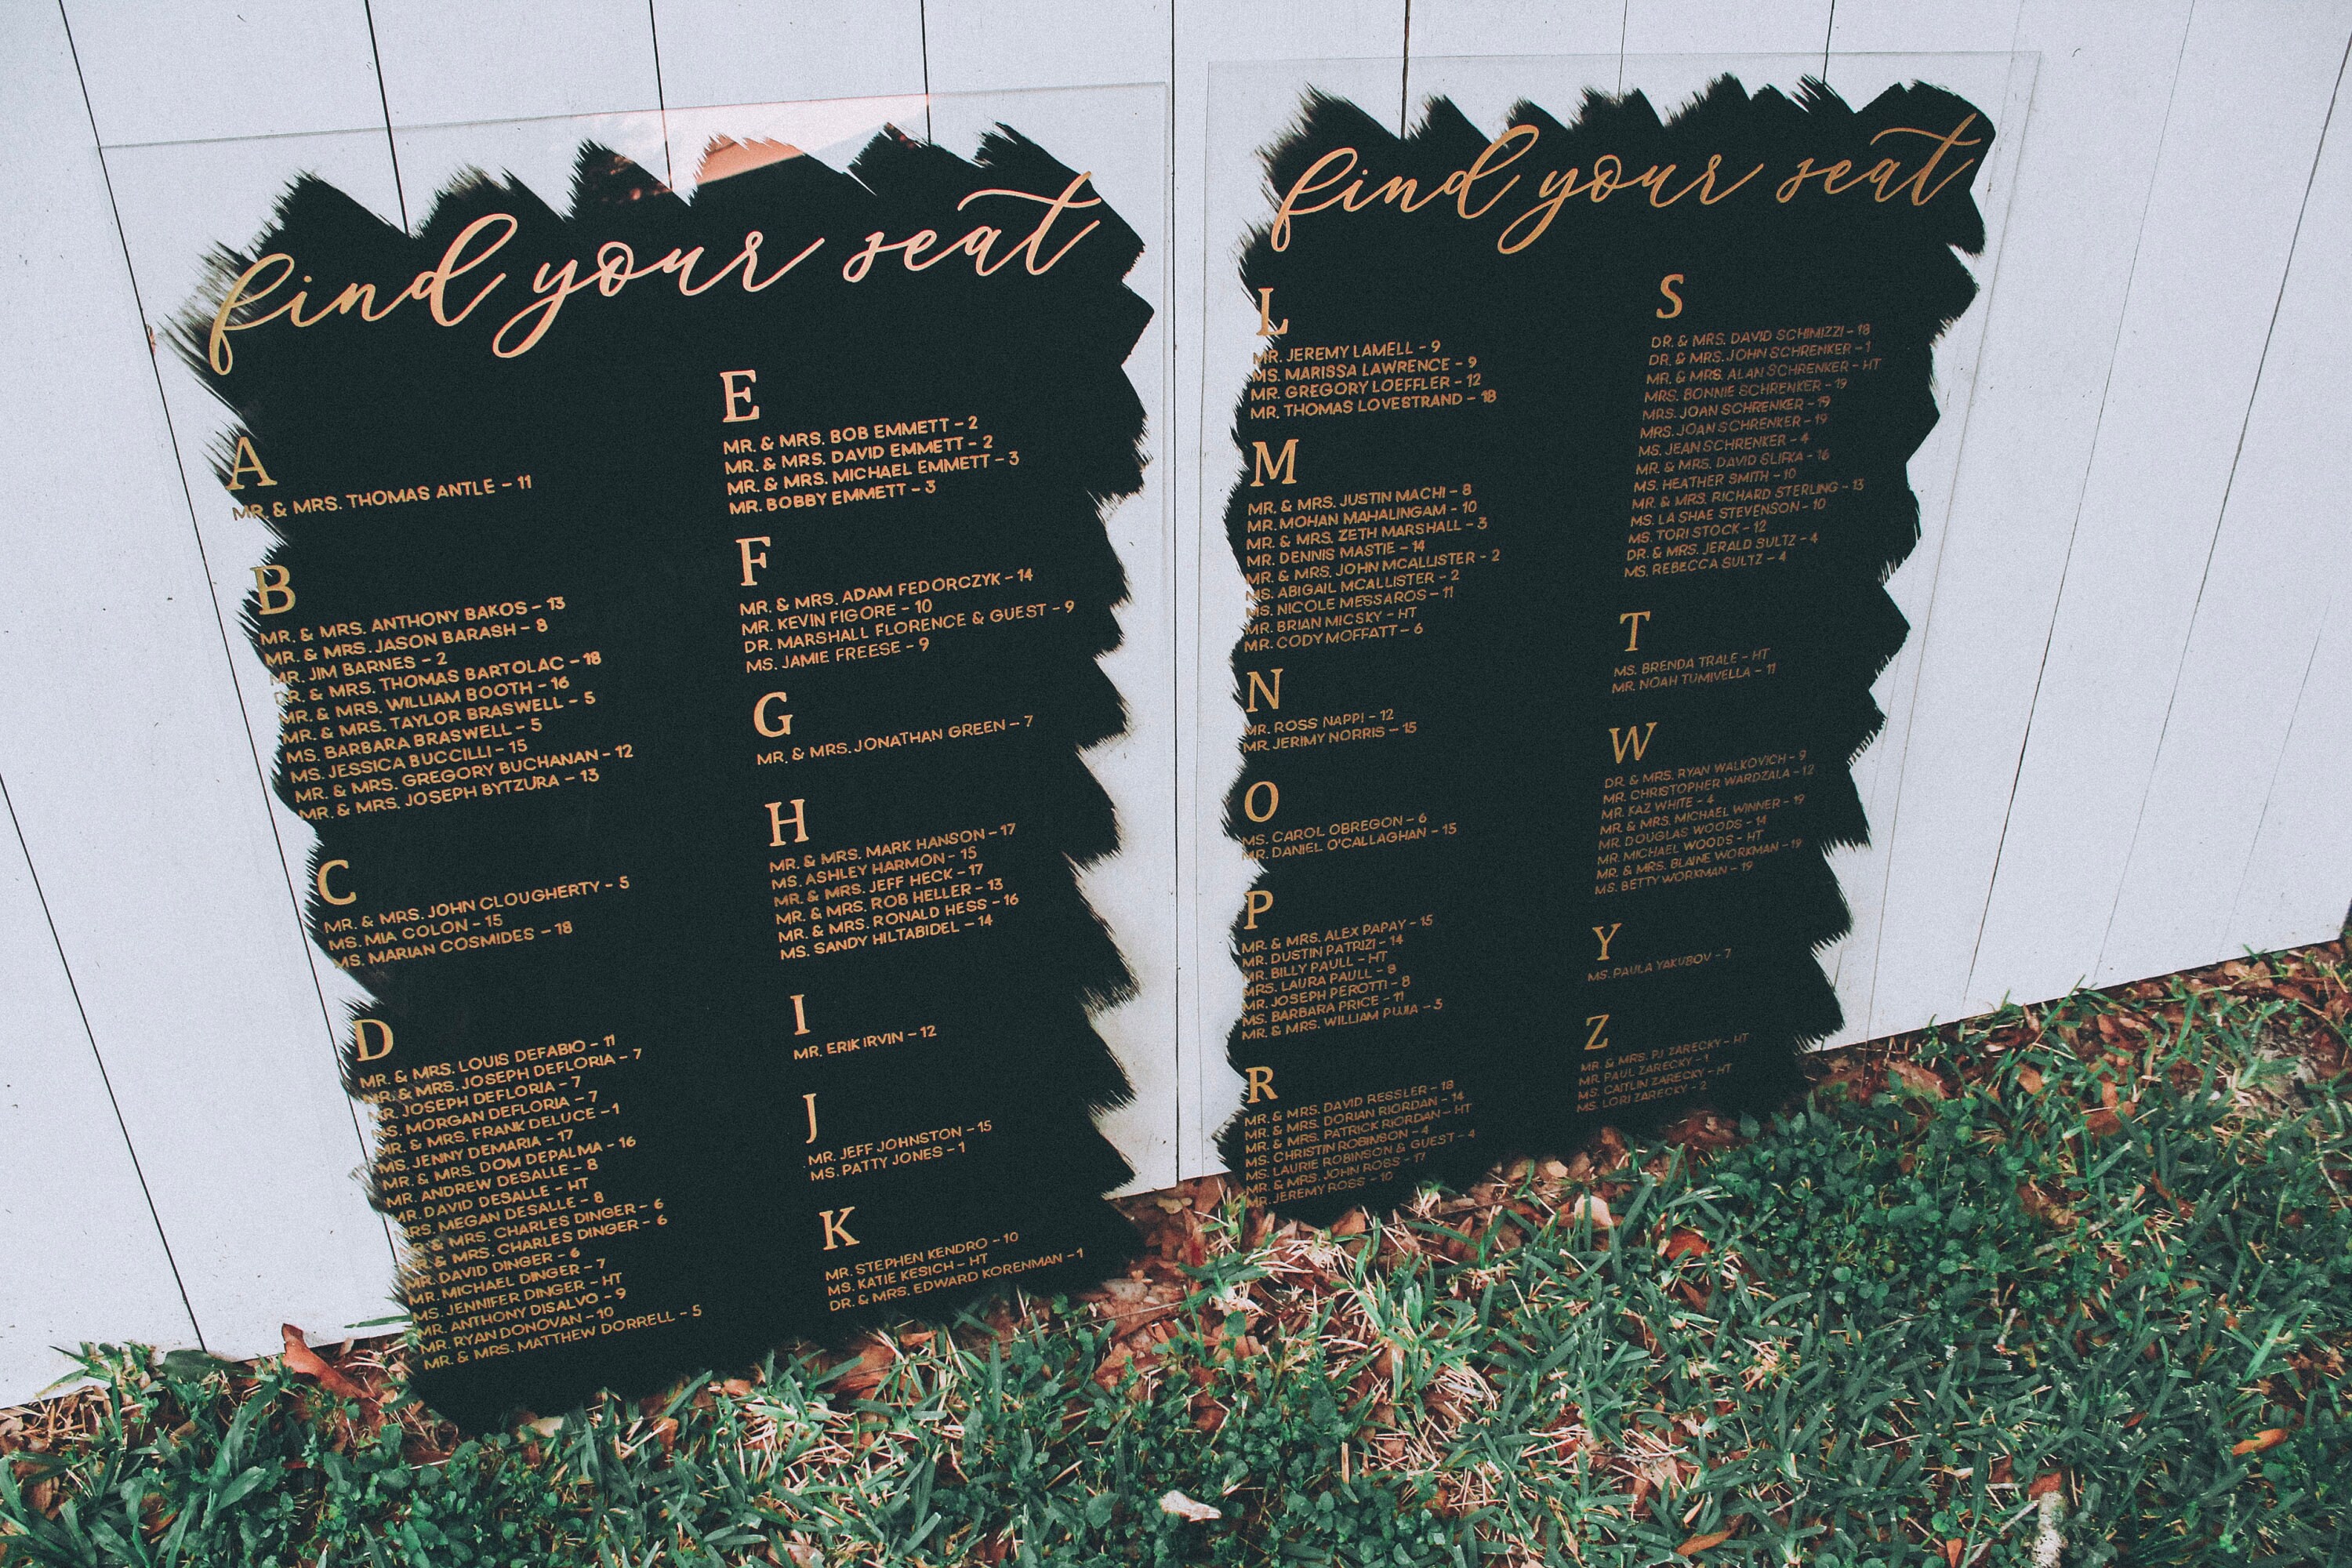 find your seat
A
MR. & MRS. THOMAS ANTLE - 11
B
MR. & MRS. ANTHONY BAKOS - 13
MR. & MRS. JASON BARASH - 8
MR. JIM BARNES - 2
DR. & MRS. THOMAS BARTOLAC - 18
MR. & MRS. WILLIAM BOOTH - 16
MR. & MRS. TAYLOR BRASWELL - 5
MS. BARBARA BRASWELL - 5
MS. JESSICA BUCCILLI - 15
MR. & MRS. GREGORY BUCHANAN - 12
MR. & MRS. JOSEPH BYTZURA - 13
C
MR. & MRS. JOHN CLOUGHERTY - 5
MS. MIA COLON - 15
MS. MARIAN COSMIDES - 18
D
MR. & MRS. LOUIS DEFABIO - 11
MR. & MRS. JOSEPH DEFLORIA - 7
MR. JOSEPH DEFLORIA - 7
MS. MORGAN DEFLORIA - 7
MR. & MRS. FRANK DELUCE - 1
MS. JENNY DEMARIA - 17
MR. & MRS. DOM DEPALMA - 16
MR. ANDREW DESALLE - 8
MR. DAVID DESALLE - HT
MRS. MEGAN DESALLE - 8
MR. & MRS. CHARLES DINGER - 6
MR. & MRS. CHARLES DINGER - 6
MR. DAVID DINGER - 6
MR. MICHAEL DINGER - 7
MS. JENNIFER DINGER - HT
MR. ANTHONY DISALVO - 9
MR. RYAN DONOVAN - 10
MR. & MRS. MATTHEW DORRELL - 5
E
MR. & MRS. BOB EMMETT - 2
MR. & MRS. DAVID EMMETT - 2
MR. & MRS. MICHAEL EMMETT - 3
MR. BOBBY EMMETT - 3
F
MR. & MRS. ADAM FEDORCZYK - 14
MR. KEVIN FIGORE - 10
DR. MARSHALL FLORENCE & GUEST - 9
MS. JAMIE FREESE - 9
G
MR. & MRS. JONATHAN GREEN - 7
H
MR. & MRS. MARK HANSON - 17
MS. ASHLEY HARMON - 15
MR. & MRS. JEFF HECK - 17
MR. & MRS. ROB HELLER - 13
MR. & MRS. RONALD HESS - 16
MS. SANDY HILTABIDEL - 14
I
MR. ERIK IRVIN - 12
J
MR. JEFF JOHNSTON - 15
MS. PATTY JONES - 1
K
MR. STEPHEN KENDRO - 10
MS. KATIE KESICH - HT
DR. & MRS. EDWARD KORENMAN - 1
find your seat
L
MR. JEREMY LAMELL - 9
MS. MARISSA LAWRENCE - 9
MR. GREGORY LOEFFLER - 12
MR. THOMAS LOVESTRAND - 18
M
MR. & MRS. JUSTIN MACHI - 8
MR. MOHAN MAHALINGAM - 10
MR. & MRS. ZETH MARSHALL - 3
MR. DENNIS MASTIE - 14
MR. & MRS. JOHN MCALLISTER - 2
MS. ABIGAIL MCALLISTER - 2
MS. NICOLE MESSAROS - 11
MR. BRIAN MICSKY - HT
MR. CODY MOFFATT - 6
N
MR. ROSS NAPPI - 12
MR. JERIMY NORRIS - 15
O
MS. CAROL OBREGON - 6
MR. DANIEL O'CALLAGHAN - 15
P
MR. & MRS. ALEX PAPAY - 15
MR. DUSTIN PATRIZI - 14
MR. BILLY PAULL - HT
MRS. LAURA PAULL - 8
MR. JOSEPH PEROTTI - 8
MS. BARBARA PRICE - 11
MR. & MRS. WILLIAM PUJIA - 3
R
MR. & MRS. DAVID RESSLER - 18
MR. & MRS. DORIAN RIORDAN - 14
MR. & MRS. PATRICK RIORDAN - HT
MS. CHRISTIN ROBINSON - 4
MS. LAURIE ROBINSON & GUEST - 4
MR. & MRS. JOHN ROSS - 17
MR. JEREMY ROSS - 10
S
DR. & MRS. DAVID SCHIMIZZI - 18
DR. & MRS. JOHN SCHRENKER - 1
MR. & MRS. ALAN SCHRENKER - HT
MRS. BONNIE SCHRENKER - 19
MRS. JOAN SCHRENKER - 19
MRS. JOAN SCHRENKER - 19
MS. JEAN SCHRENKER - 4
MR. & MRS. DAVID SLIFKA - 16
MS. HEATHER SMITH - 10
MR. & MRS. RICHARD STERLING - 13
MS. LA SHAE STEVENSON - 10
MS. TORI STOCK - 12
DR. & MRS. JERALD SULTZ - 4
MS. REBECCA SULTZ - 4
T
MS. BRENDA TRALE - HT
MR. NOAH TUMIVELLA - 11
W
DR. & MRS. RYAN WALKOVICH - 9
MR. CHRISTOPHER WARDZALA - 12
MR. KAZ WHITE - 4
MR. & MRS. MICHAEL WINNER - 19
MR. DOUGLAS WOODS - 14
MR. MICHAEL WOODS - HT
MR. & MRS. BLAINE WORKMAN - 19
MS. BETTY WORKMAN - 19
Y
MS. PAULA YAKUBOV - 7
Z
MR. & MRS. PJ ZARECKY - HT
MR. PAUL ZARECKY - 1
MS. CAITLIN ZARECKY - HT
MS. LORI ZARECKY - 2